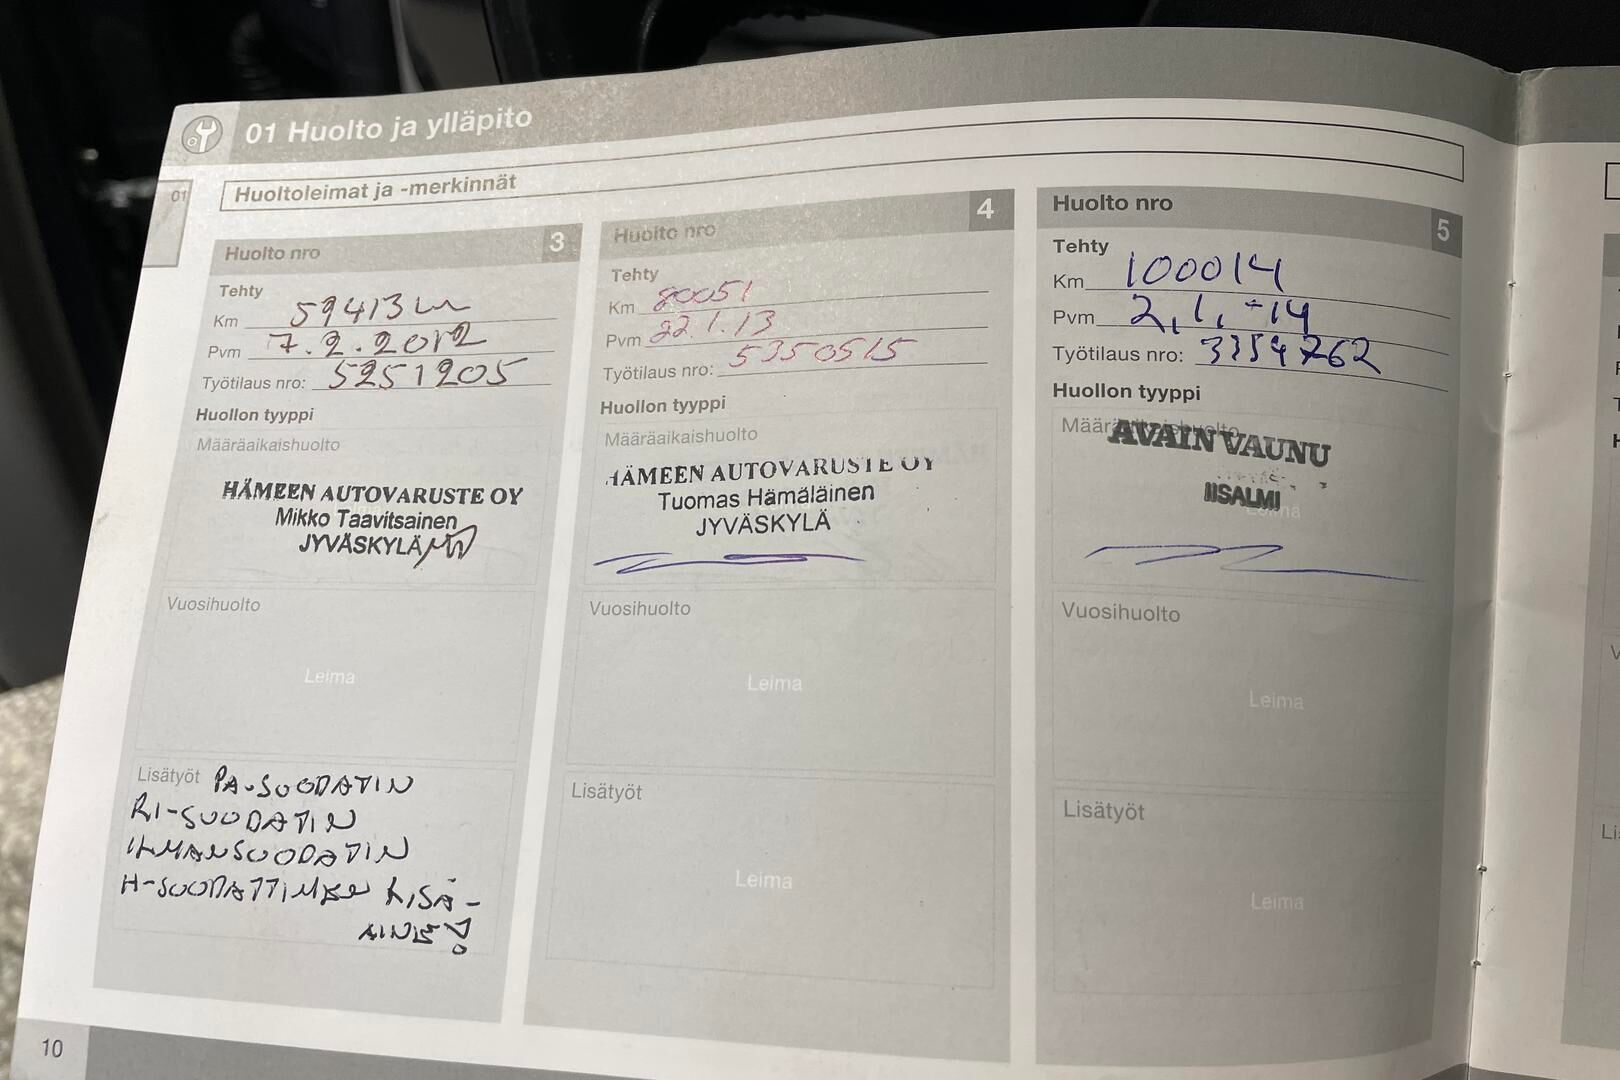 01 Huolto ja ylläpito
01
Huoltoleimat ja -merkinnät
Huolto nro 3
Tehty
Km 59413
Pvm 7.2.2012
Työtilaus nro: 5251205
Huollon tyyppi
Määräaikaishuolto
HÄMEEN AUTOVARUSTE OY
Mikko Taavitsainen
JYVÄSKYLÄ
Vuosihuolto
Leima
Lisätyöt PA-SUODATIN
RI-SUODATIN
ILMANSUODATIN
H-SUODATTIMEN LISÄ-
AINE!
Huolto nro 4
Tehty
Km 80051
Pvm 22.1.13
Työtilaus nro: 5350515
Huollon tyyppi
Määräaikaishuolto
HÄMEEN AUTOVARUSTE OY
Tuomas Hämäläinen
JYVÄSKYLÄ
Vuosihuolto
Leima
Lisätyöt
Leima
Huolto nro 5
Tehty
Km 100014
Pvm 2.1.-14
Työtilaus nro: 3354762
Huollon tyyppi
Määräaikaishuolto
AVAIN VAUNU
IISALMI
Leima
Vuosihuolto
Leima
Lisätyöt
Leima
10